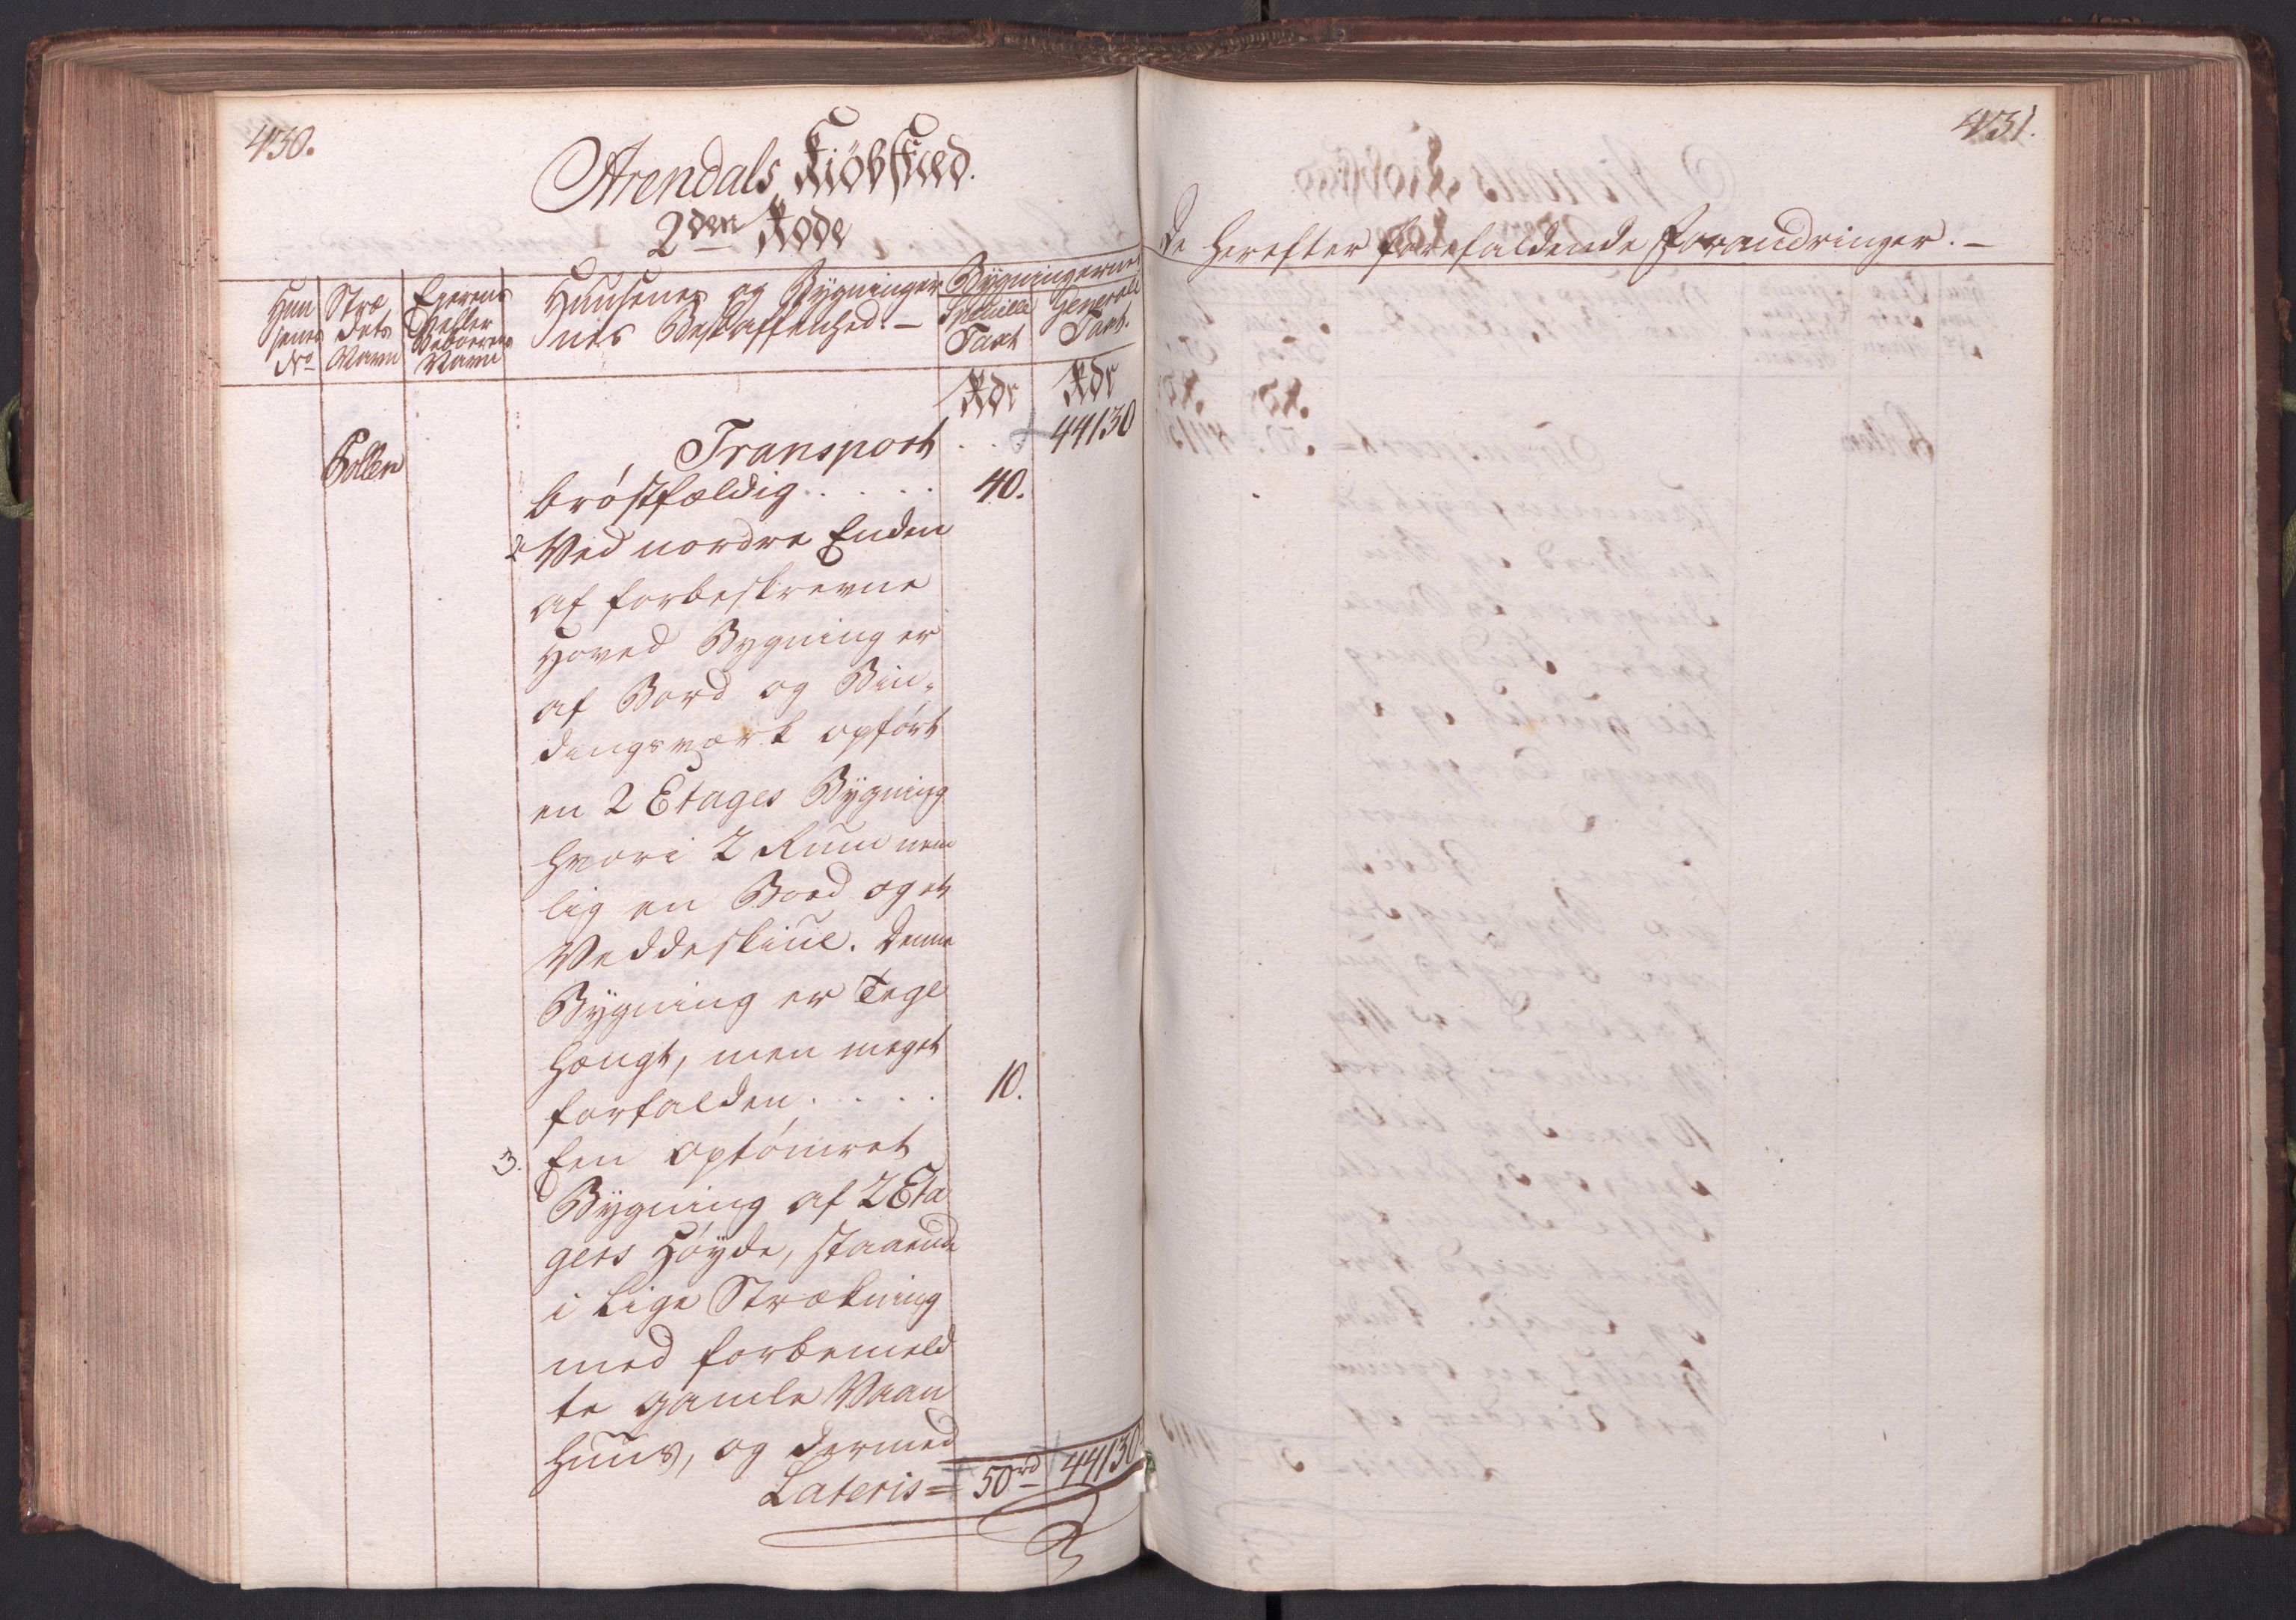 430.
Arendals Kiöbstæd.
2den Rode
Huu
senes
No
Stræ
dets
Navn
Eierens
eller
Beboerens
Navn
Huusenes og Bygninger
nes Beskaffenhed. —
Bygningernes
Specielle
Taxt
Generale
Taxt.
Rdr Rdr
Transport . . 44130
Pollen
brøstfældig . . . . . 40.
2 Ved nordre Enden
af forbeskrevne
Hoved Bygning er
af Bord og Bin„
dingsværk opført
en 2 Etages Bygning
hvori 2 Rum nem
lig en Boed og et
Veddeskiul. Denne
Bygning er Tegl
hængt, men meget
forfalden . . . . . 10.
3. Een optømret
Bygning af 2 Eta
gers Høyde, staaende
i lige Strækning
med forbemeld
te gamle Vaan
huus, og dermed
Lateris = 50rd 44130
431.
de herefter forefaldende Forandringer. —